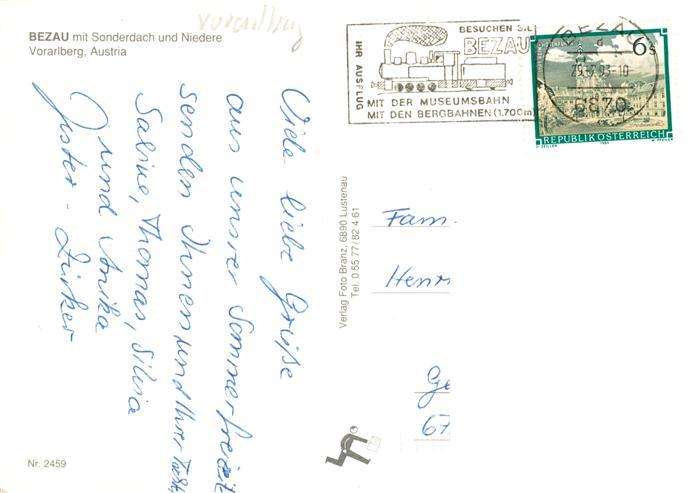 BEZAU mit Sonderdach und Niedere
Vorarlberg, Austria
vorarlberg
Viele liebe Grüße
aus unsrer Sommerfreizeit
senden Ihnen und Ihrer
Sabine, Thomas, Silvia
und Anika
Nr. 2459
Verlag Foto Branz, 6890 Lustenau
Tel. 0 55 77/82 4 61
IHR AUSFLUG
BESUCHEN SIE
BEZAU
MIT DER MUSEUMSBAHN
MIT DEN BERGBAHNEN (1.700m)
BEZAU
6870
6 S
REPUBLIK ÖSTERREICH
Fam.
Henr
Ge
67